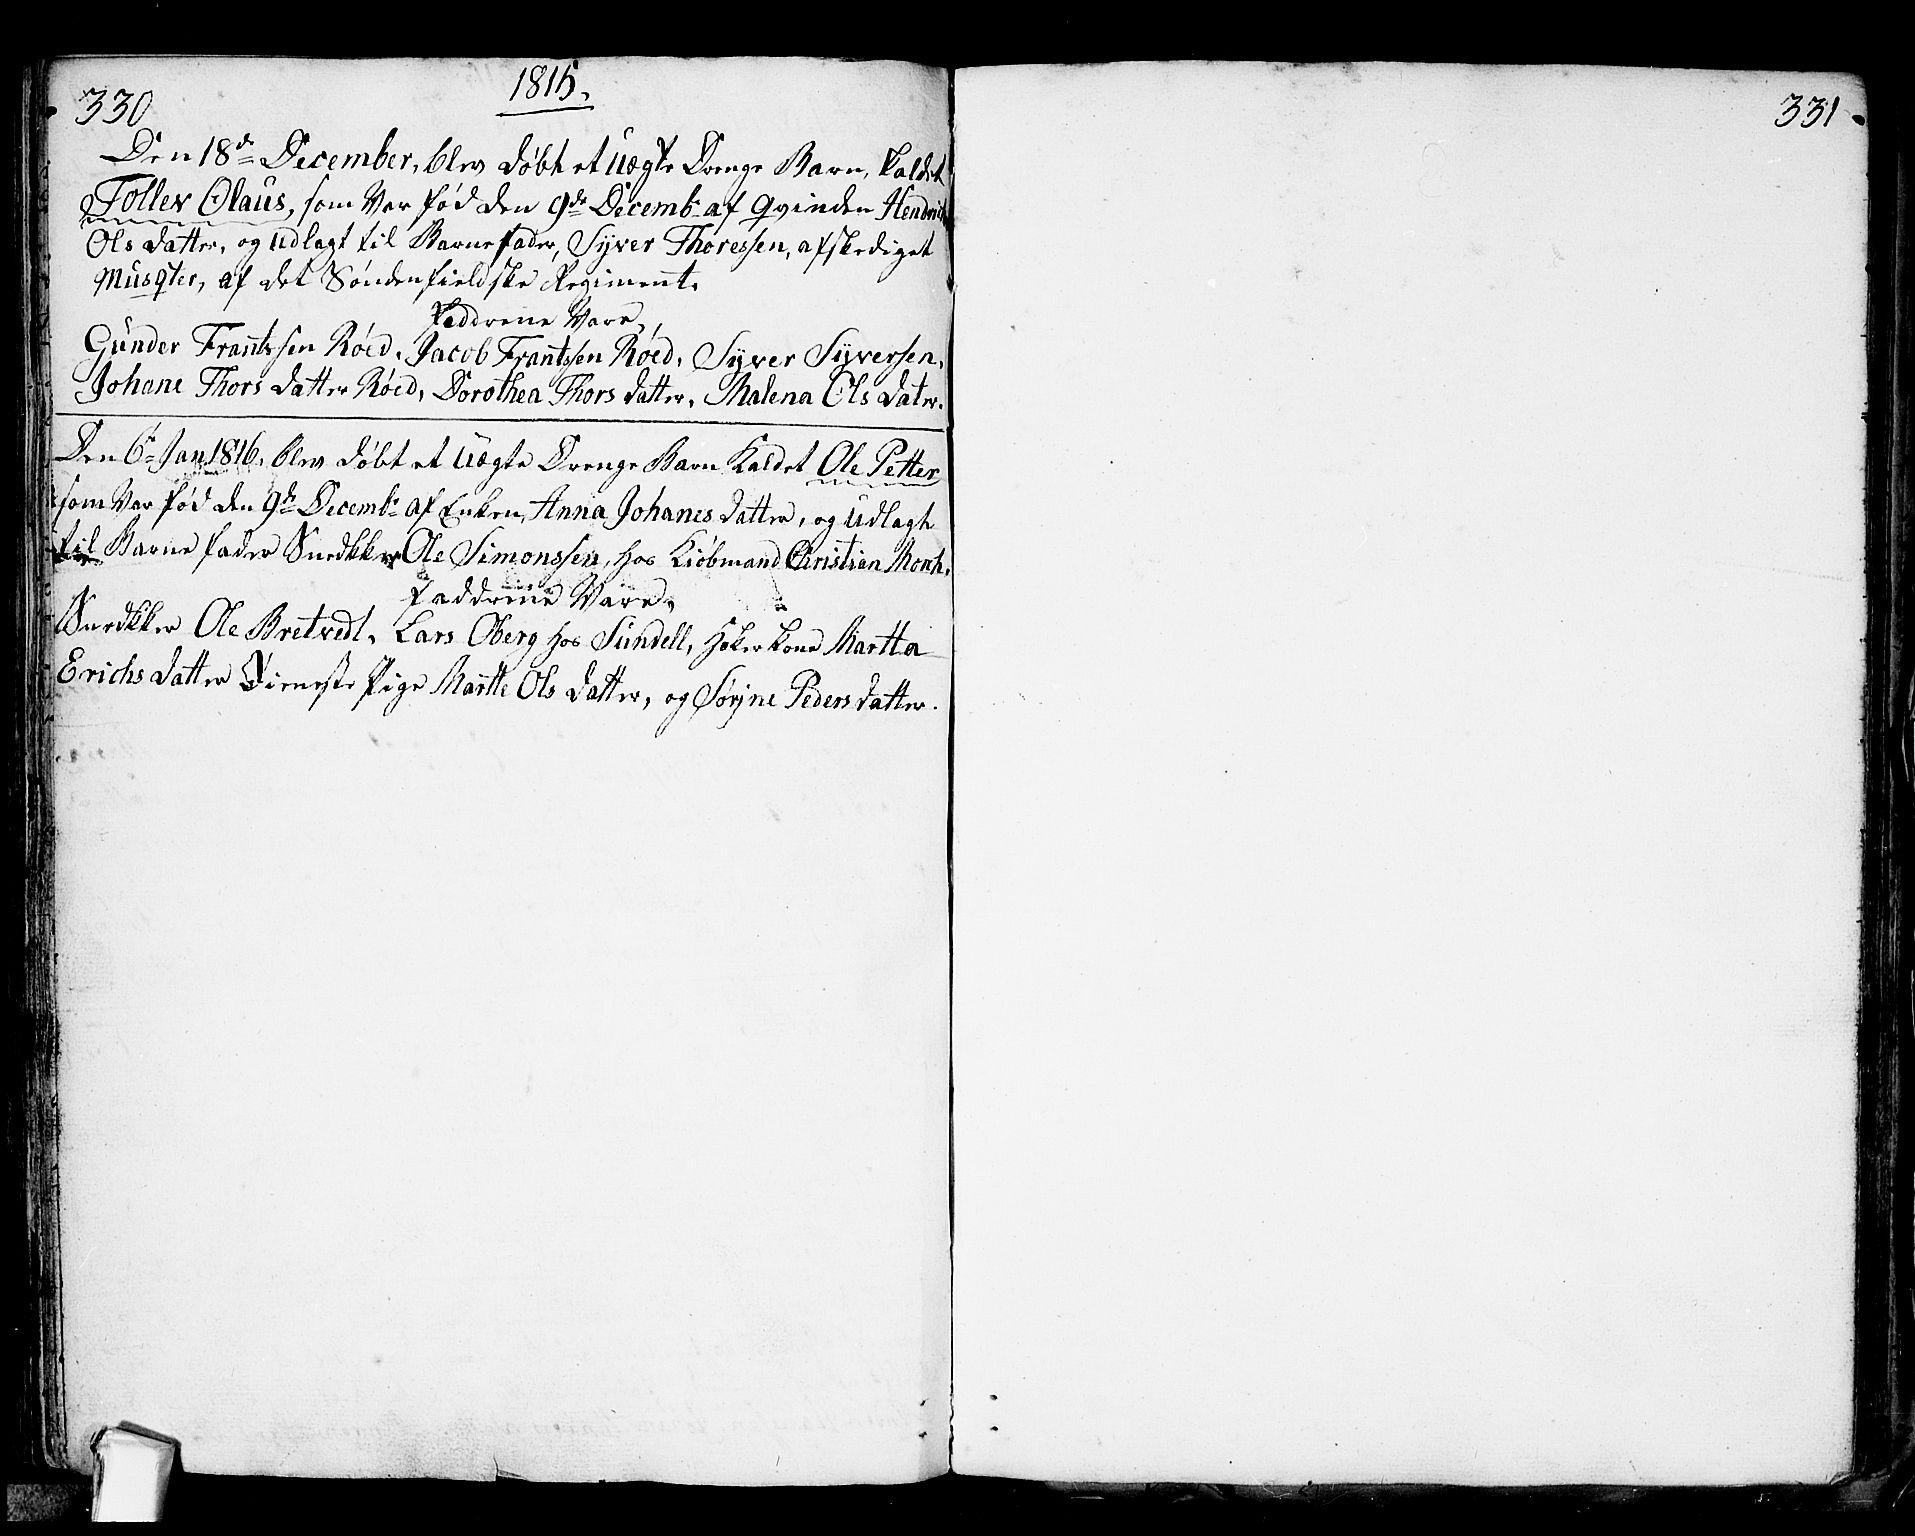 330
1815.
Den 18de December, blev døbt et uægte Drenge Barn, kaldet
Tollev Olaus, som Var fød den 9de Decemb. af qvinden Hendrich
Ols datter, og udlagt til Barnefader, Syver Thoressen, afskediget
Musqter, af det Søndenfieldske Regiment.
Faddrene Vare,
Gunder Frantssen Röed, Jacob Frantssen Röed, Syver Syversen,
Johane Thors datter Röed, Dorothea Thors datter, Malena Ols dater.
Den 6te Jan 1816, blev døbt et uægte Drenge Barn Kaldet Ole Petter
som Var fød den 9de Decemb. af Enken, Anna Johanes datter, og udlagt
til Barne fader Snedkker Ole Simonssen, hos Kiöbmand Christian Monk.
Faddrene Vare,
Snedkker Ole Bretvedt, Lars Oberg hos Sundell, Høkerkone Martta
Erichs datter Dieneste Pige Martte Ols datter, og Sørine Peders datter.
331